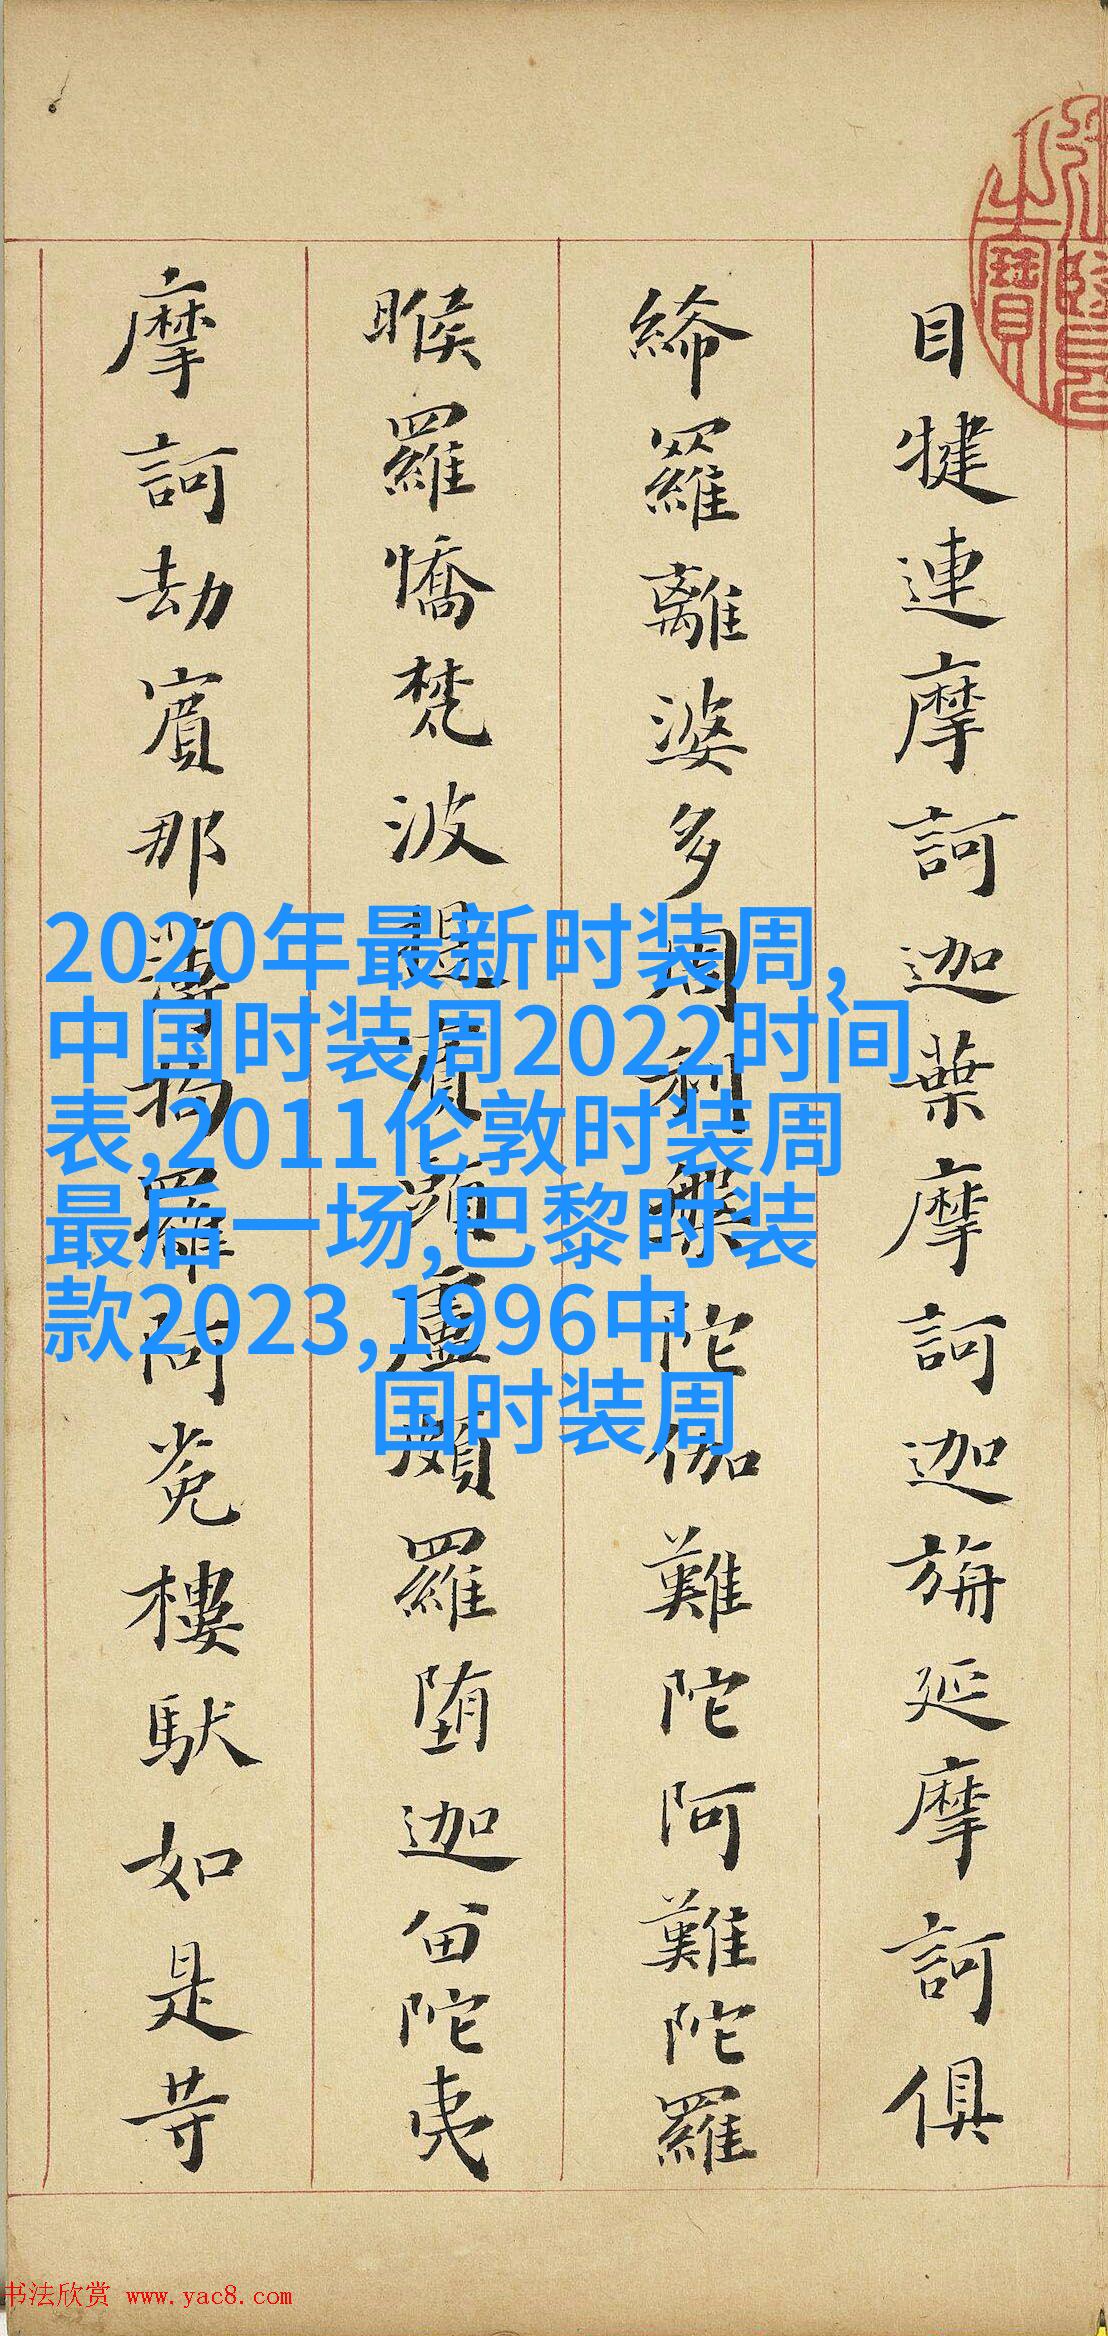 目犍連摩訶迦葉摩訶迦旃延摩訶俱
絺羅離婆多周利槃陀伽難陀阿難陀羅
睺羅憍梵波提賓頭盧頗羅堕迦留陀夷
摩訶劫賓那薄拘羅阿㝹樓馱如是等
之寶
2020年最新时装周,
中国时装周2022时间
表,2011伦敦时装周
最后一场,巴黎时装
款2023,1996中
国时装周
书法欣赏 www.yac8.com